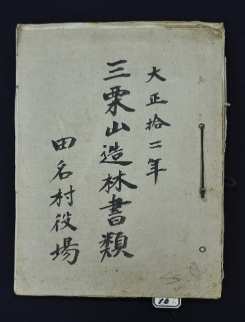 大正拾二年
三栗山造林書類
田名村役場